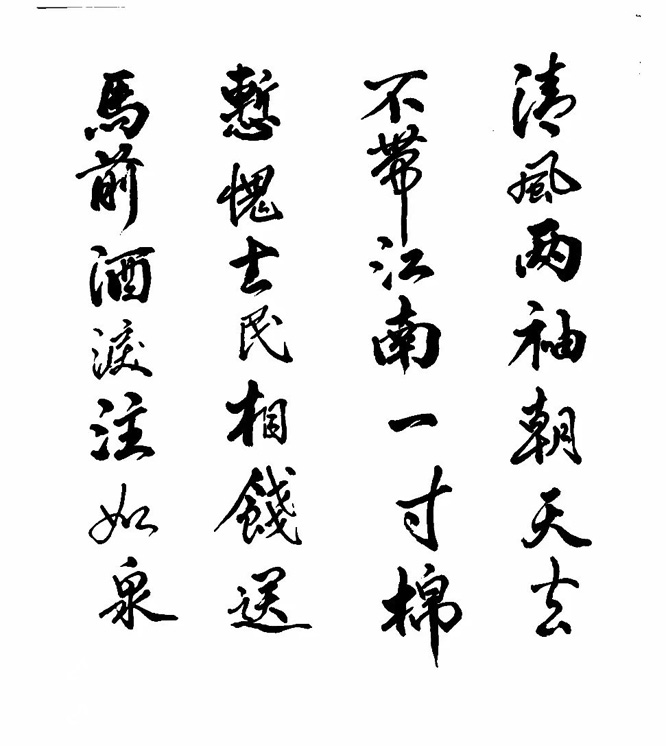 清風两袖朝天去
不帶江南一寸棉
慙愧士民相餞送
馬前酒淚注如泉